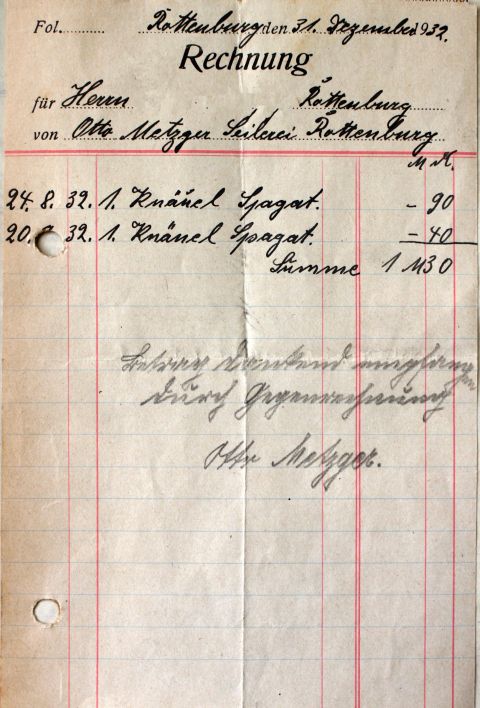 Fol. Rottenburg den 31. Dezember 1932.
Rechnung
für Herrn Rottenburg
von Otto Metzger Seilerei Rottenburg
M
24. 8. 32. 1. Knäuel Spagat. - 90
20. 32. 1. Knäuel Spagat. - 40
Summe 1 M 30
Betrag dankend empfangen
durch Gegenrechnung
Otto Metzger.